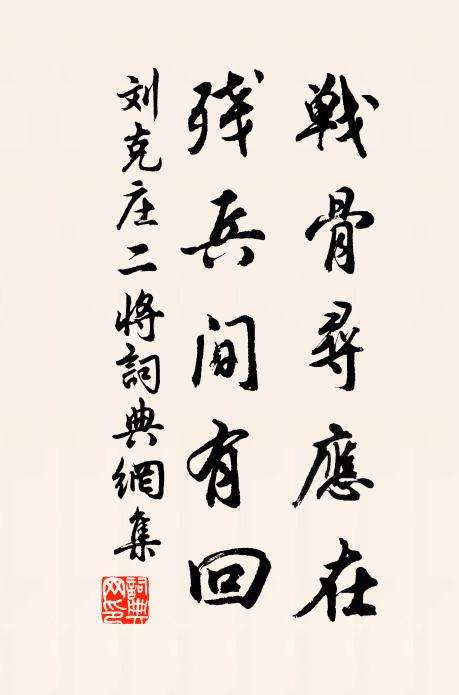 戰骨尋應在
殘兵間有回
刘克庄二将詞典網集
詞典网印